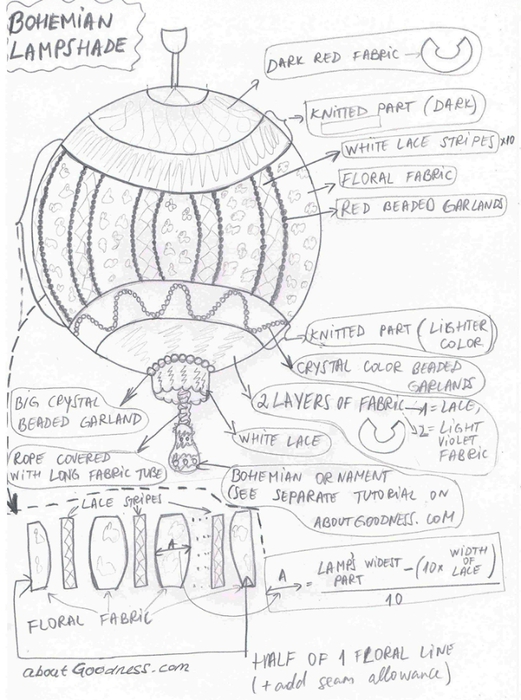 BOHEMIAN
LAMPSHADE
DARK RED FABRIC
KNITTED PART (DARK)
WHITE LACE STRIPES x10
FLORAL FABRIC
RED BEADED GARLANDS
KNITTED PART (LIGHTER
COLOR)
CRYSTAL COLOR BEADED
GARLANDS
BIG CRYSTAL
BEADED GARLAND
2 LAYERS OF FABRIC
1= LACE,
2= LIGHT
VIOLET
FABRIC
WHITE LACE
ROPE COVERED
WITH LONG FABRIC TUBE
BOHEMIAN ORNAMENT
(SEE SEPARATE TUTORIAL ON
ABOUTGOODNESS.COM
LACE STRIPES
A
FLORAL FABRIC
A = LAMP'S WIDEST PART - (10x WIDTH OF LACE)
10
HALF OF 1 FLORAL LINE
(+ add seam allowance)
aboutGoodness.com